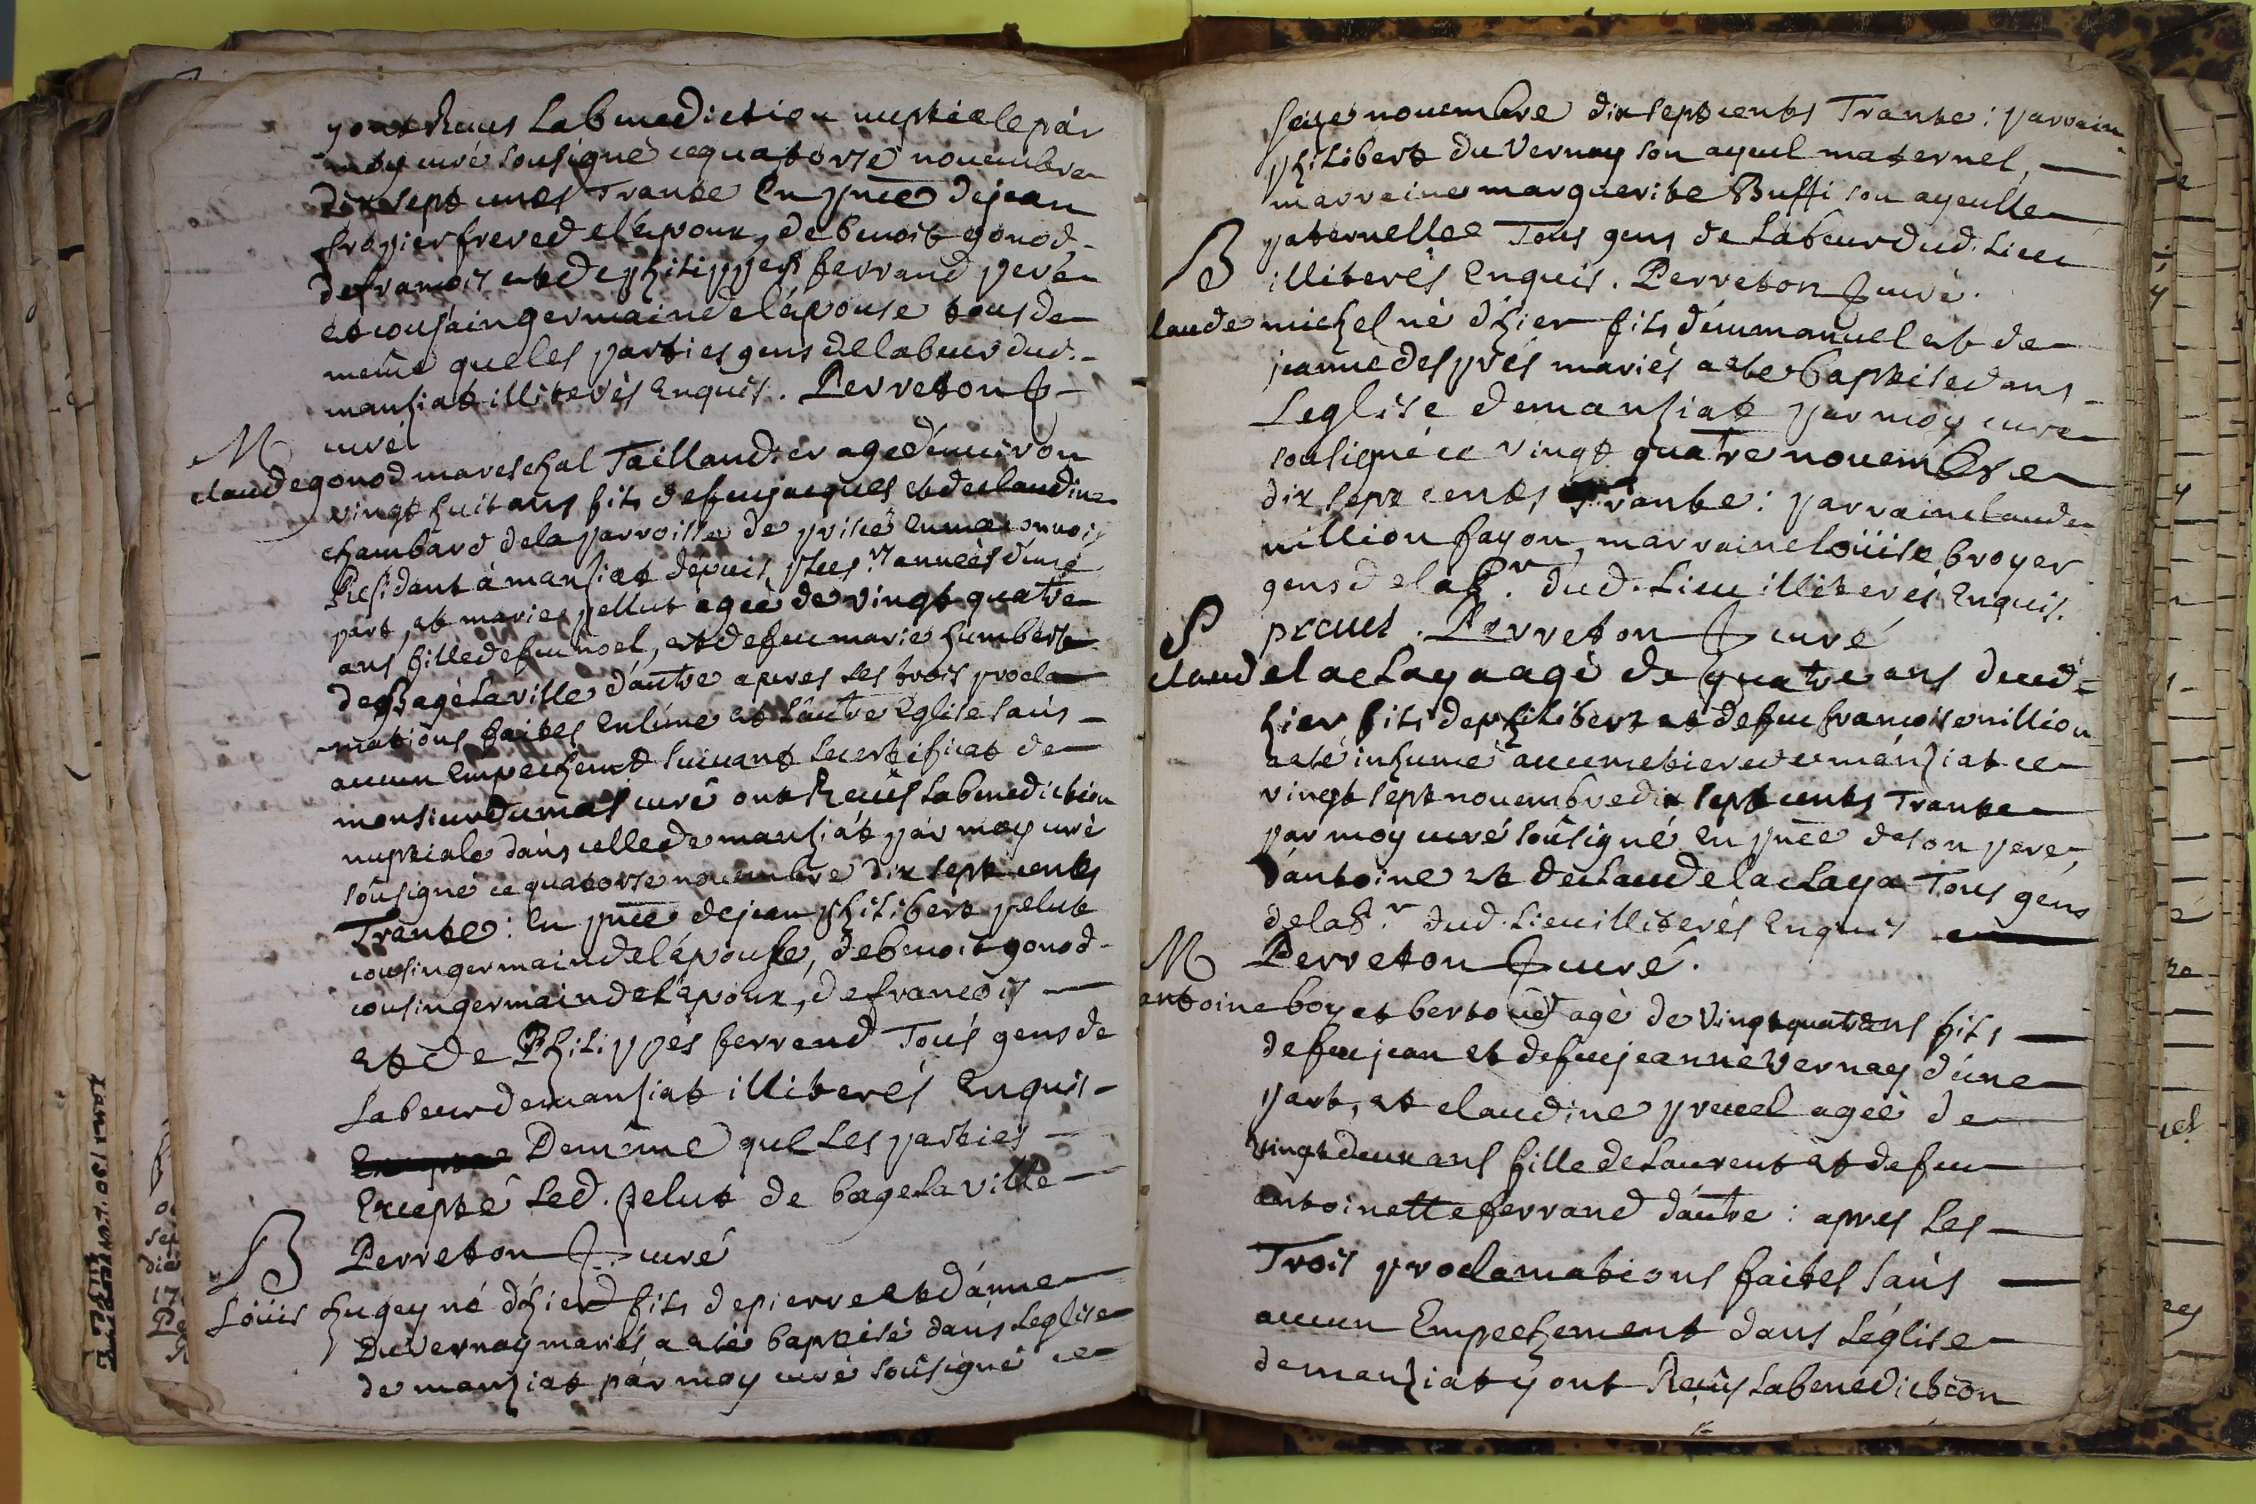 yont Reçus La benediction nuptiale par
moy curé sousigné ce quatorse novembre
dix sept cents Trante En pnce de jean
froyier frere de l'époux, de benoit gonod -
de francois et de philippes ferrand pere
et cousain germain de l'épouse tous de
même que les parties gens de labeur dud. -
manziat illiterés Enquis. Perreton J -
curé
M
claude gonod mareschal Taillandier age d'environ
vingt huit ans fils de feu jacques et de claudine
chambard de la parroisse de prisse en maconnois
Residant à manziat depuis plusrs années d'une
part, et marie pellut agée de vingt quatre
ans fille de feu noel, et de feu marie humbert
de Bagé La ville d'autre apres Les trois procla
mations faites En lune et l'autre Eglise sans -
aucun Empechemt suivant Le certificat de
monsieur dumas curé ont Reçus La benediction
nuptiale dans celle de manziat par moy curé
sousigné ce quatorse novembre dix sept cents
Trante: En pnce de jean philibert pelut
cousin germain de l'épouse, de benoit gonod -
cousin germain de l'époux, de francois
et de Philippes ferrand Tous gens de
Labeur de manziat illiterés Enquis -
Demême que Les parties
Excepté Led. pelut de bage La ville
Perreton J curé
B
Loüis hugey né d'hier fils de pierre et d'anne
Duvernay mariés a eté baptisé dans Leglise
de manziat par moy curé sousigné ce
seize novembre dix sept cents Trante: parrain
philibert du Vernay son ayeul maternel,
marraine marguerite Buffi son ayeulle
paternelle Tous gens de Labeur dud. Lieu
illiterés Enquis. Perreton J curé.
B
laude michel né d'hier fils d'emmanuel et de
jeanne des prés mariés a eté baptisé dans -
Leglise de manziat par moy curé
sousigné ce vingt quatre novembre
dix sept cents Trante: parrain claude
nillion fayon, marraine Loüise broyer
gens de labr. dud. Lieu illiterés Enquis.
Perreton J curé
S
claude laclaya agé de quatre ans deced.
hier fils de philibert et de feu francoise nillion
a eté inhumé au cimetiere de manziat ce
vingt sept novembre dix sept cents Trante
par moy curé sousigné En pnce de son pere,
d'antoine et de claude laclaya Tous gens
de labr. dud. Lieu illiterés Enquis
Perreton J curé.
M
antoine boyat bertoud agé de vingt quatre ans fils
de feu jean et de feu jeanne Vernay d'une
part, et claudine pruel agée de
vingt deux ans fille de Laurent et de feu
antoinette ferrand d'autre: apres Les -
Trois proclamations faites sans
aucun Empechement dans Léglise
de manziat y ont Reçus La benediction